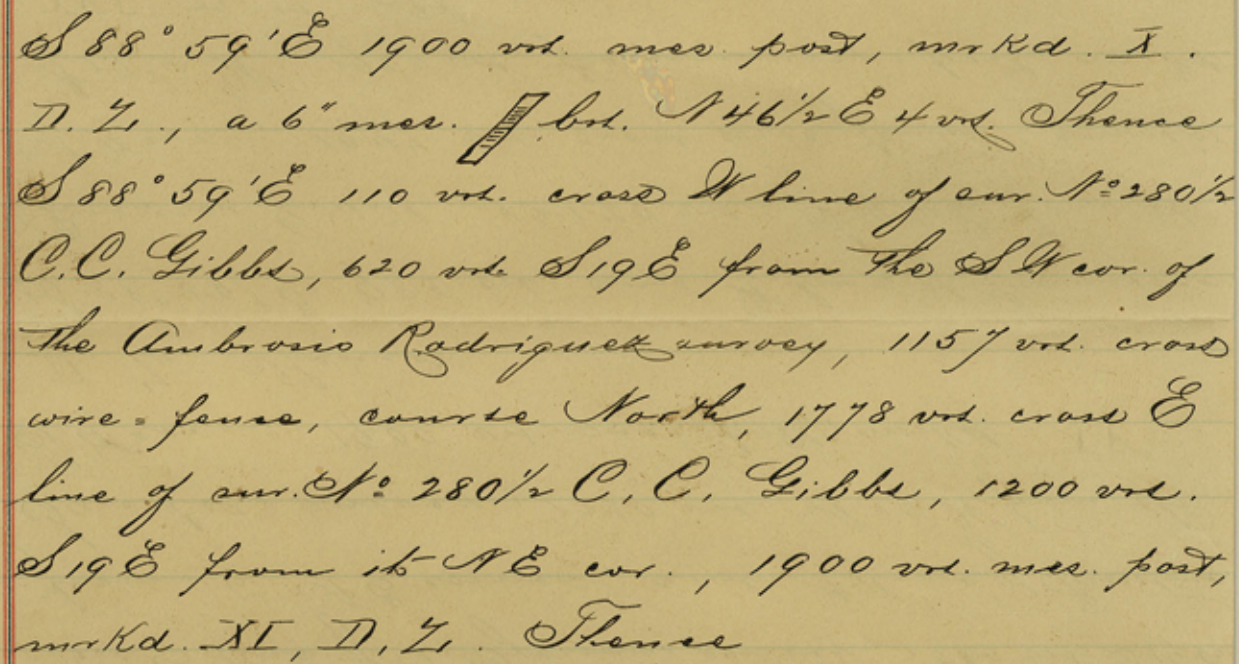 S 88° 59' E 1900 vrs. mes. post, mrkd. X.
D. Z., a 6" mes. brs. N 46 1/2 E 4 vrs. Thence
S 88° 59' E 110 vrs. cross W line of sur. No 280 1/2
C.C. Gibbs, 620 vrs. S 19 E from the S W cor. of
the Ambrosio Rodriguez survey, 1157 vrs. cross
wire = fense, course North, 1778 vrs. cross E
line of sur. No 280 1/2 C. C. Gibbs, 1200 vrs.
S 19 E from its N E cor., 1900 vrs. mes. post,
mrkd. XI, D. Z. Thence